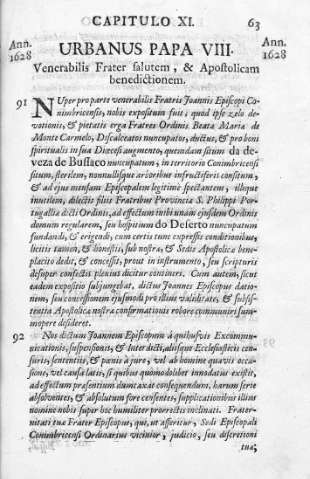 CAPITULO XI. 63
Ann. 1628
URBANUS PAPA VIII.
Ann. 1628
Venerabilis Frater salutem, & Apostolicam
benedictionem.
91 NUper pro parte venerabilis Fratris Joannis Episcopi Co-
nimbricensis, nobis expositum fuit, quod ipse zelo de-
votionis, & pietatis erga Fratres Ordinis Beata Maria de
Monte Carmelo, Discalceatos nuncupatos, ductus, & pro boni
spiritualis in sua Diœcesi augmento, quemdam situm da de-
veza de Bussaco nuncupatum, in territorio Conimbricensi
situm, sterilem, nonnullisque arboribus infructiferis consitum,
& ad ejus mensam Episcopalem legitimè spectantem, illoque
invitilem, dilectis filiis Fratribus Provincia S. Philippi Por-
tugallia dicti Ordinis, ad effectum inibi unam ejusdem Ordinis
domum regularem, seu hospitium do Deserto nuncupatum
fundandi, & erigendi, cum certis tunc expressis conditionibus,
licitis tamen, & honestis, sub nostra, & Sedis Apostolica bene-
placito dedit, & concessit, prout in instrumento, seu scripturis
desuper confectis plenius dicitur contineri. Cum autem, sicut
eadem expositio subjungebat, dictus Joannes Episcopus datio-
nem, seu concessionem ejusmodi pro illius validitate, & subsis-
tentia Apostolica nostra confirmationis robore communiri sum-
mopere desideret.
92 Nos dictum Joannem Episcopum à quibusvis Excommu-
nicationis, suspensionis, & Interdicti, aliisque Ecclesiasticis cen-
suris, sententiis, & pœnis à jure, vel ab homine quavis occa-
sione, vel causa latis, si quibus quomodolibet innodatus existit,
ad effectum præsentium dumtaxat consequendum, harum serie
absolventes, & absolutum fore censentes, supplicationibus illius
nomine nobis super hoc humiliter porrectis inclinati. Frater-
nitati tua Frater Episcopus, qui, ut asseritur, Sedi Episcopali
Conimbricensi Ordinarius vicinior, judicio, seu discretioni
tua;